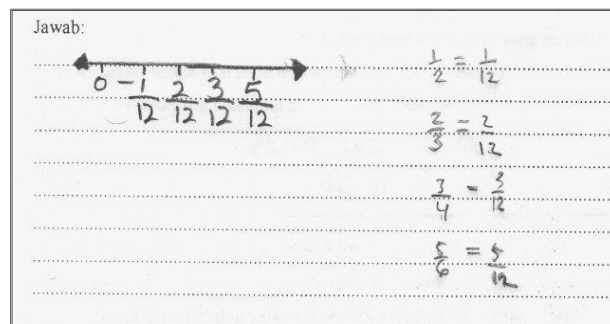 Jawab:
0 -1/12 2/12 3/12 5/12
1/2 = 1/12
2/3 = 2/12
3/4 = 3/12
5/6 = 5/12